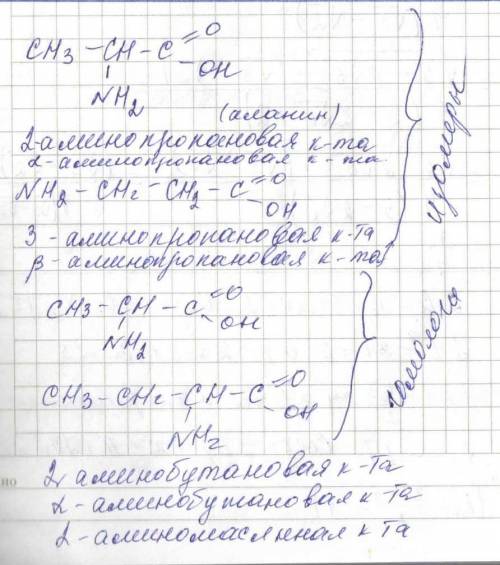 CH3 - CH - C =O
OH
NH2
(аланин)
2-аминопропановая к-та
α-аминопропановая к-та
NH2 - CH2 - CH2 - C =O
OH
3-аминопропановая к-та
β-аминопропановая к-та
изомеры
CH3 - CH - C =O
OH
NH2
CH3 - CH2 - CH - C =O
OH
NH2
гомологи
2 аминобутановая к-та
α-аминобутановая к та
α-аминомасляная к та
но